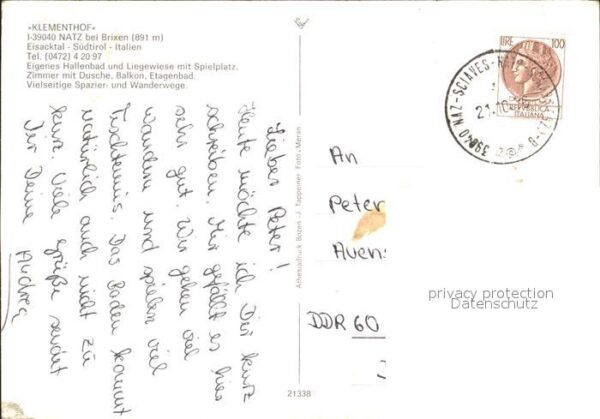 »KLEMENTHOF«
I-39040 NATZ bei Brixen (891 m)
Eisacktal - Südtirol - Italien
Tel. (0472) 4 20 97
Eigenes Hallenbad und Liegewiese mit Spielplatz.
Zimmer mit Dusche, Balkon, Etagenbad.
Vielseitige Spazier- und Wanderwege.
Lieber Peter!
Heute möchte ich Dir kurz
schreiben. Mir gefällt es hier
sehr gut. Wir gehen viel
wandern und spielen viel
Tischtennis. Das Baden kommt
natürlich auch nicht zu
kurz. Viele Grüße sendet
Dir Deine
Andrea
Athesiadruck Bozen - J. Tappeiner Foto - Meran
21338
LIRE 100
REPUBBLICA
ITALIANA
39040 NAZ-SCIAVES-NATZ
21.10
An
Peter
Auens
DDR 60
privacy protection
Datenschutz